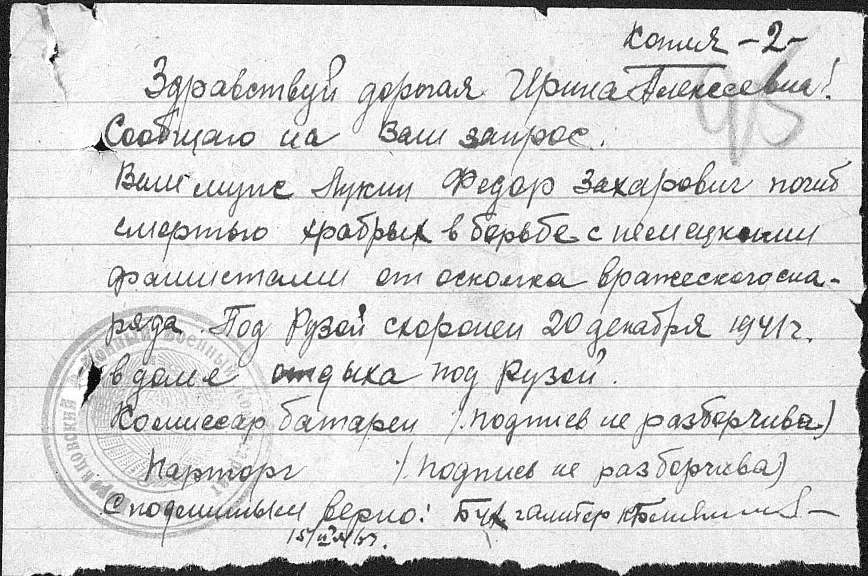 Копия -2-
Здравствуй дорогая Ирина Алексеевна!
Сообщаю на Ваш запрос.
Ваш муж Лукин Федор Захарович погиб
смертью храбрых в борьбе с немецкими
фашистами от осколка вражеского сна-
ряда. Под Рузой схоронен 20 декабря 1941 г.
в доме отдыха под Рузой.
Комиссар батареи /подпись не разборчива)
Парторг /подпись не разборчива)
С подлинным верно: Бухгалтер